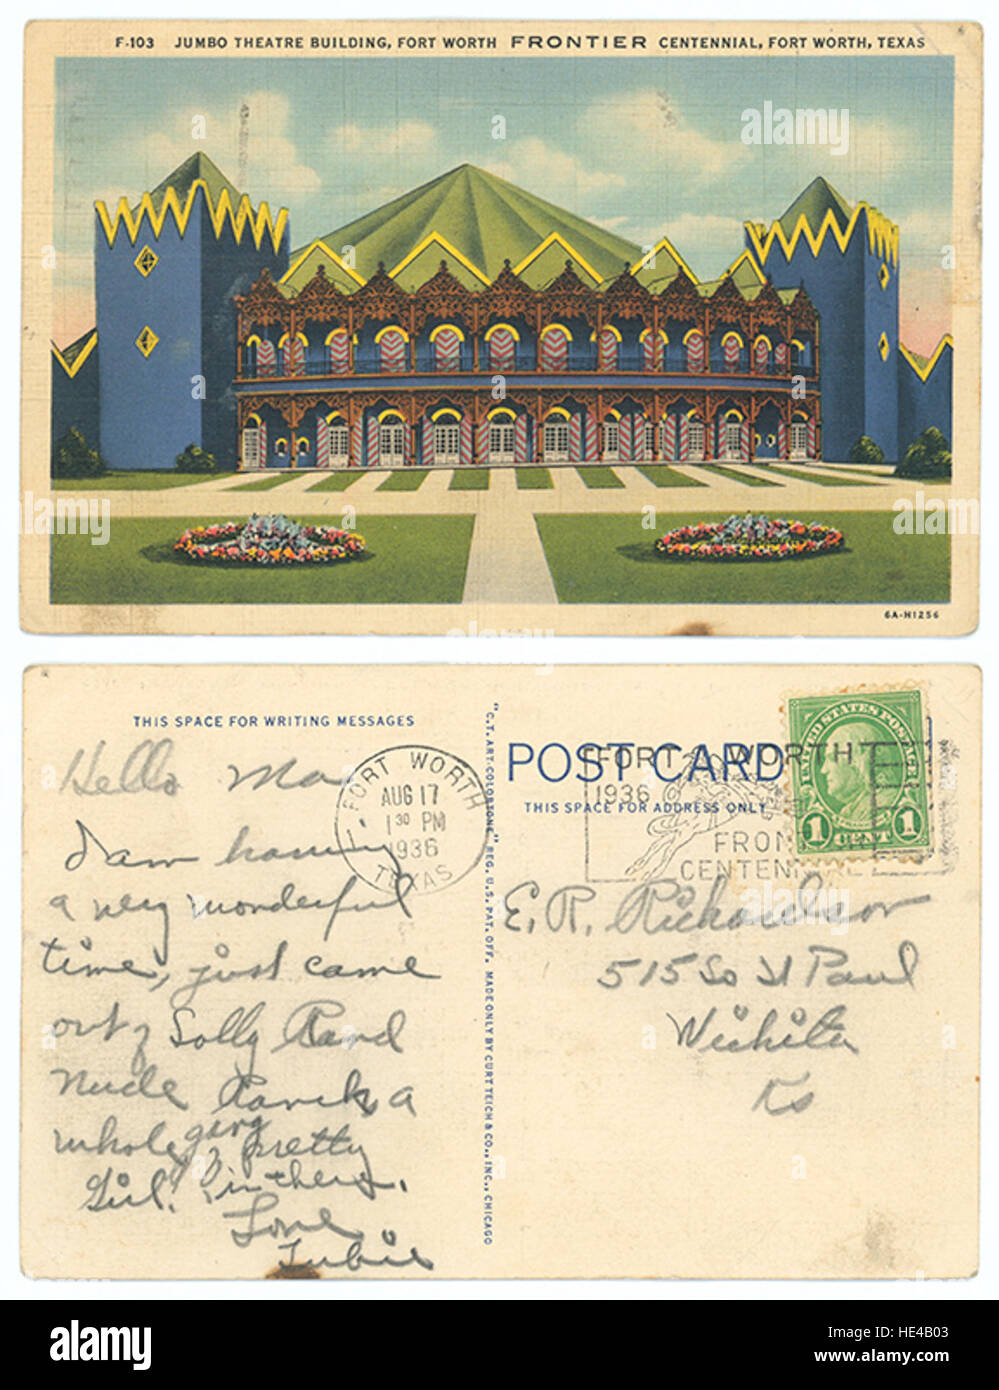 F-103 JUMBO THEATRE BUILDING, FORT WORTH FRONTIER CENTENNIAL, FORT WORTH, TEXAS
6A-H1256
THIS SPACE FOR WRITING MESSAGES
Hello Ma
I am having
a very wonderful
time, just came
out of Sally Rand
Nude Ranch, a
whole gang of pretty
Girl! in there.
Love
FORT WORTH
AUG 17
1 30 PM
1936
TEXAS
"C.T. ART-COLORTONE" REG. U.S. PAT. OFF. MADE ONLY BY CURT TEICH & CO., INC., CHICAGO
POST CARD
THIS SPACE FOR ADDRESS ONLY
FORT WORTH
1936
FRON
CENTENNIAL
UNITED STATES POSTAGE
1 CENT 1
E. R. Richardson
515 So St Paul
Wichita
Ks
a
alamy
alamy
HE4B03
www.alamy.com